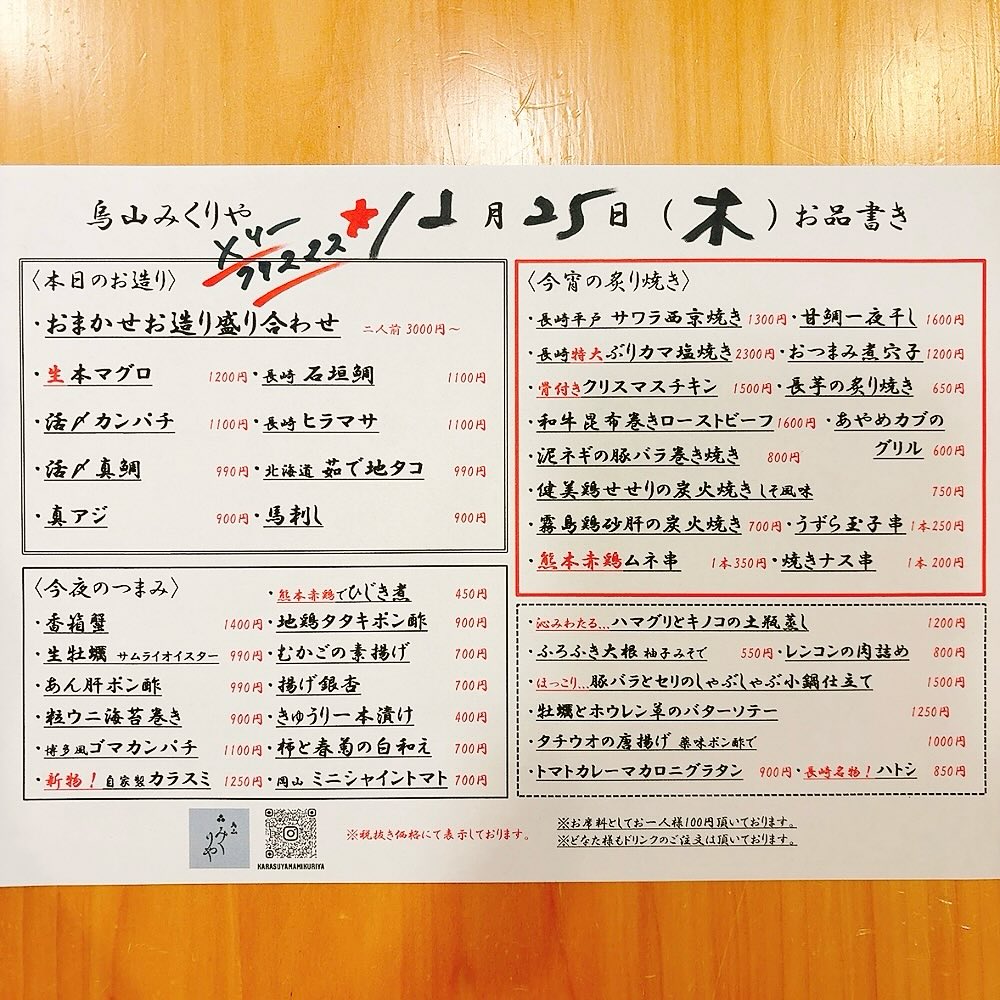 烏山みくりや 12月25日(木)お品書き
メリー
クリスマス
〈本日のお造り〉
・おまかせお造り盛り合わせ 二人前 3000円〜
・生本マグロ 1200円・長崎 石垣鯛 1100円
・活〆カンパチ 1100円・長崎 ヒラマサ 1100円
・活〆真鯛 990円・北海道 茹で地タコ 990円
・真アジ 900円・馬刺し 900円
〈今夜のつまみ〉 ・熊本赤鶏でひじき煮 450円
・香箱蟹 1400円・地鶏タタキポン酢 900円
・生牡蠣 サムライオイスター 990円・むかごの素揚げ 700円
・あん肝ポン酢 990円・揚げ銀杏 700円
・粒ウニ海苔巻き 900円・きゅうり一本漬け 400円
・博多風ゴマカンパチ 1100円・柿と春菊の白和え 700円
・新物!自家製カラスミ 1250円・岡山 ミニシャイントマト 700円
〈今宵の炙り焼き〉
・長崎平戸 サワラ西京焼き 1300円・甘鯛一夜干し 1600円
・長崎特大ぶりカマ塩焼き 2300円・おつまみ煮穴子 1200円
・骨付きクリスマスチキン 1500円・長芋の炙り焼き 650円
・和牛昆布巻きローストビーフ 1600円・あやめカブの
グリル 600円
・泥ネギの豚バラ巻き焼き 800円
・健美鶏せせりの炭火焼き しそ風味 750円
・霧島鶏砂肝の炭火焼き 700円・うずら玉子串 1本250円
・熊本赤鶏ムネ串 1本350円・焼きナス串 1本200円
・沁みわたる...ハマグリとキノコの土瓶蒸し 1200円
・ふろふき大根 柚子みそで 550円・レンコンの肉詰め 800円
・ほっこり...豚バラとセリのしゃぶしゃぶ小鍋仕立て 1500円
・牡蠣とホウレン草のバターソテー 1250円
・タチウオの唐揚げ 薬味ポン酢で 1000円
・トマトカレーマカロニグラタン 900円・長崎名物!ハトシ 850円
烏山
みくりや
KARASUYAMAMIKURIYA
※税抜き価格にて表示しております。
※お席料としてお一人様100円頂いております。
※どなた様もドリンクのご注文は頂いております。